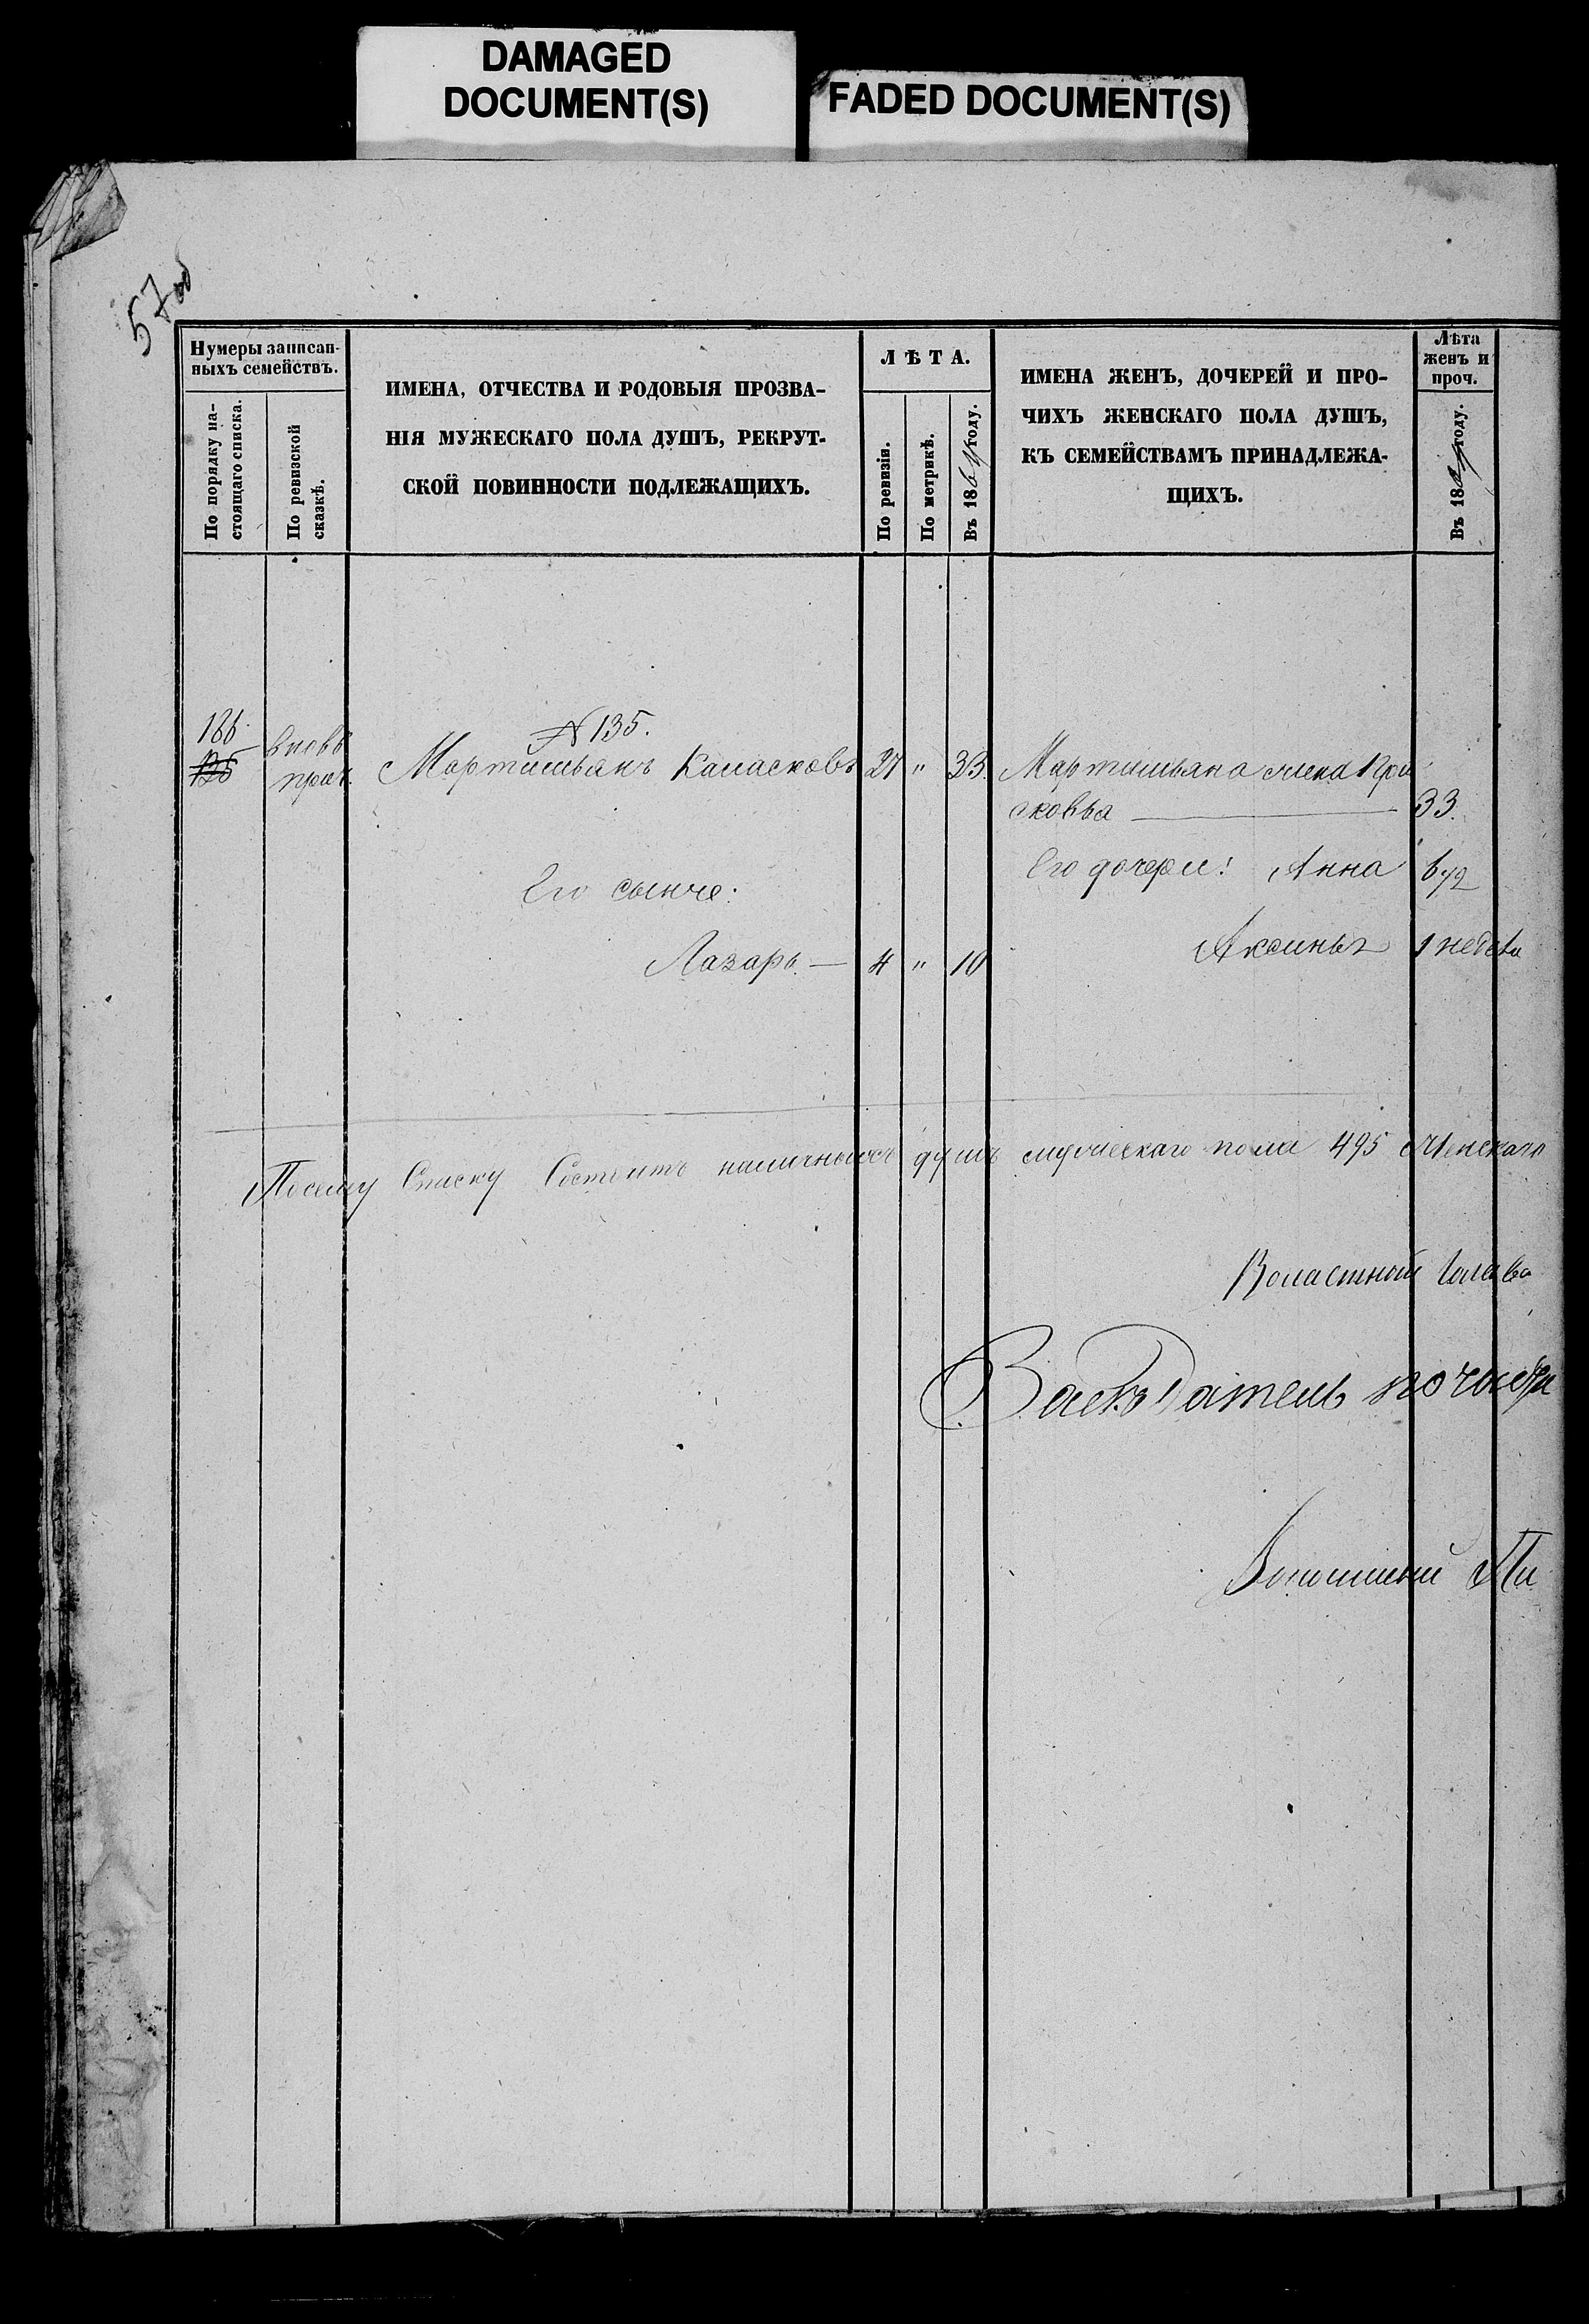 DAMAGED
DOCUMENT(S)
FADED DOCUMENT(S)
57об
Нумеры записан-
ныхъ семействъ.
По порядку на-
стоящаго списка.
По ревизской
сказкѣ.
ИМЕНА, ОТЧЕСТВА И РОДОВЫЯ ПРОЗВА-
НІЯ МУЖЕСКАГО ПОЛА ДУШЪ, РЕКРУТ-
СКОЙ ПОВИННОСТИ ПОДЛЕЖАЩИХЪ.
ЛѢТА.
По ревизіи.
По метрикѣ.
Въ 186 году.
ИМЕНА ЖЕНЪ, ДОЧЕРЕЙ И ПРО-
ЧИХЪ ЖЕНСКАГО ПОЛА ДУШЪ,
КЪ СЕМЕЙСТВАМЪ ПРИНАДЛЕЖА-
ЩИХЪ.
Лѣта
женъ и
проч.
Въ 18 году.
№ 135.
вновь
прич. Мартимьянъ Каласковъ 27 " 33. Мартимьяна жена Пра
сковья 33.
Его дочери: Анна 6 1/2
Его сынъ:
Лазарь — 4 " 10
Аксинья 1 недѣля
Посему Списку Состоитъ наличныхъ душъ мужескаго пола 495 Женскаго
Воластной Голова
Засѣдатель по
Волостный Пи